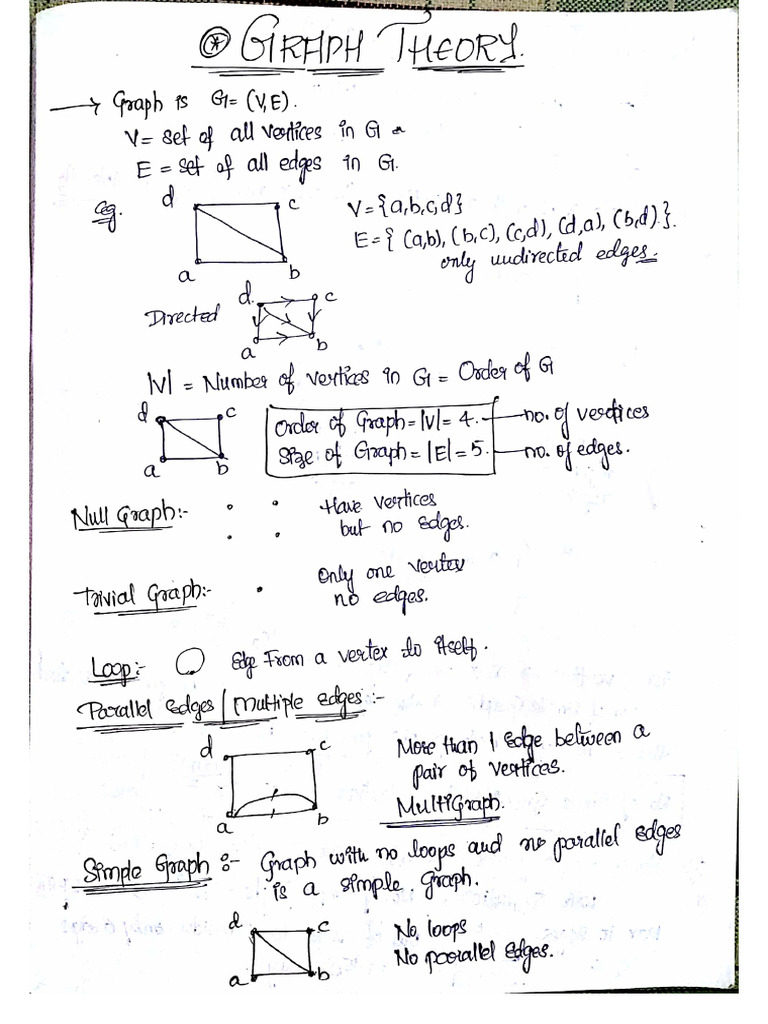 ⊛ GRAPH THEORY.
→ Graph is G = (V,E).
V = set of all vertices in G
E = set of all edges in G.
eg.
d c
a b
V = {a,b,c,d}
E = { (a,b), (b,c), (c,d), (d,a), (b,d) }.
only undirected edges.
Directed
d c
a b
|V| = Number of vertices in G = Order of G
d c
a b
Order of Graph = |V| = 4. — no. of vertices
Size of Graph = |E| = 5. — no. of edges.
Null Graph:- Have vertices
but no edges.
Trivial Graph:- Only one vertex
no edges.
Loop:- Edge From a vertex to itself.
Parallel edges / Multiple edges :-
d c
a b
More than 1 edge between a
pair of vertices.
MultiGraph.
Simple Graph :- Graph with no loops and no parallel edges
is a simple graph.
d c
a b
No loops
No parallel edges.